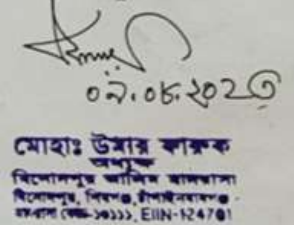 ০৯.০৮.২০২৩
মোহাঃ উমার ফারুক
অধ্যক্ষ
বিনোদপুর আলিম মাদরাসা
বিনোদপুর, শিবগঞ্জ, চাঁপাইনবাবগঞ্জ
EIIN-124701